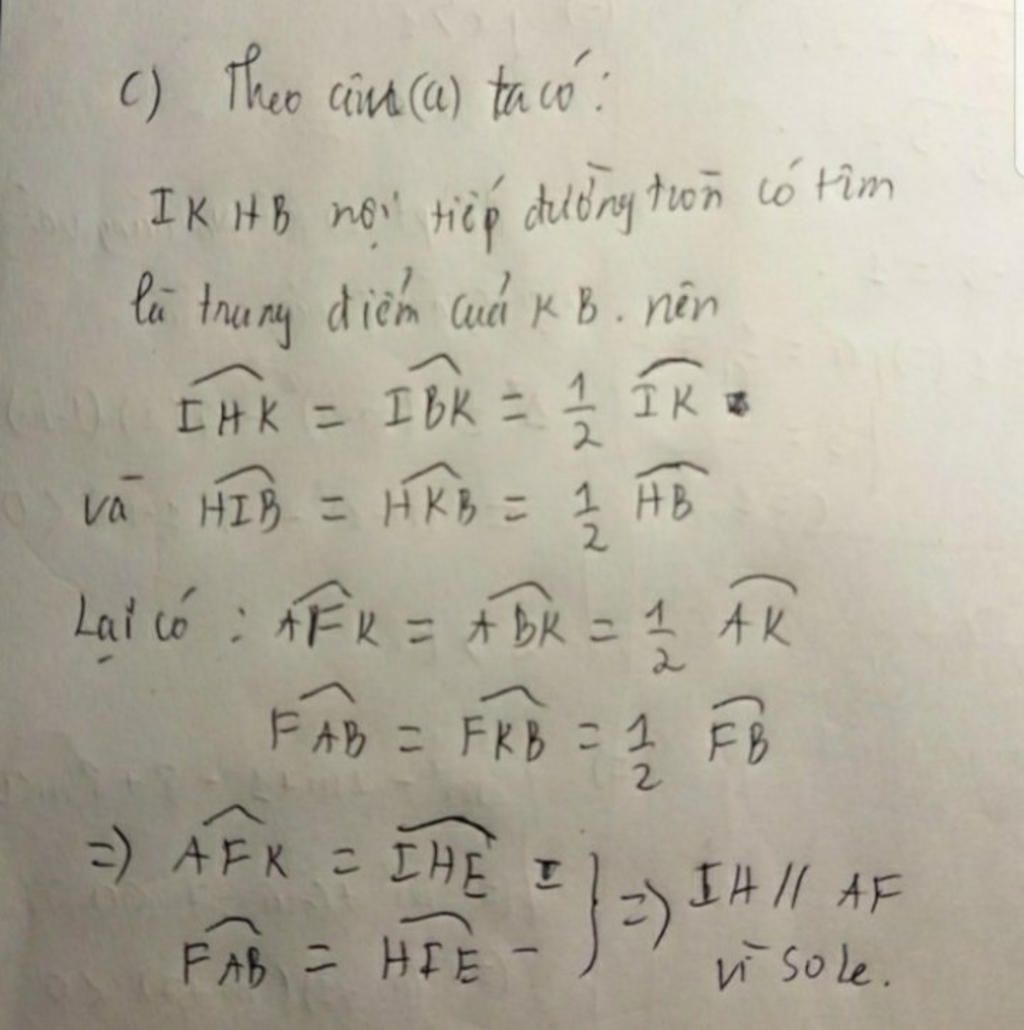 c) Theo câu (a) ta có:
IKHB nội tiếp đường tròn có tâm
là trung điểm của KB. nên
$\widehat{IHK} = \widehat{IBK} = \frac{1}{2} \widehat{IK}$
và $\widehat{HIB} = \widehat{HKB} = \frac{1}{2} \widehat{HB}$
Lại có: $\widehat{AFK} = \widehat{ABK} = \frac{1}{2} \widehat{AK}$
$\widehat{FAB} = \widehat{FKB} = \frac{1}{2} \widehat{FB}$
=> $\widehat{AFK} = \widehat{IHE}$ } => IH // AF
$\widehat{FAB} = \widehat{HIE}$ - vì sole.